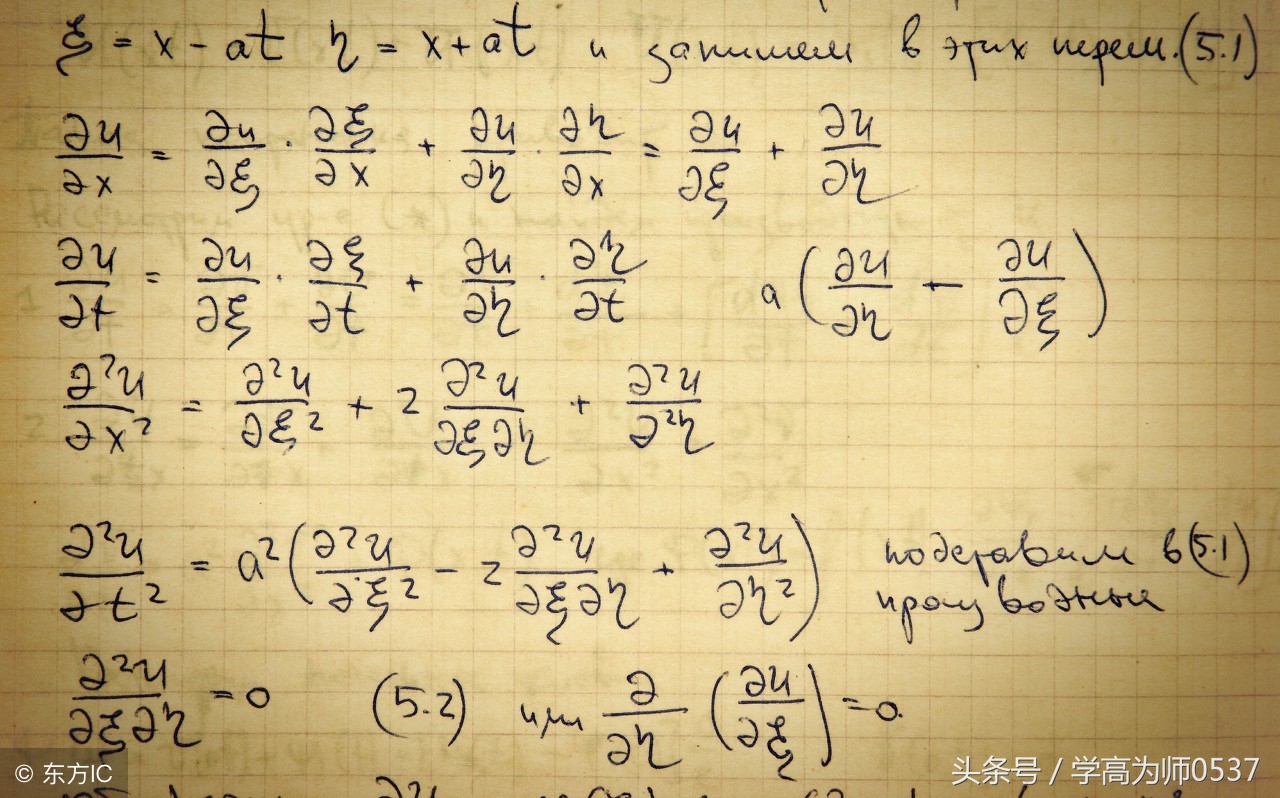 ξ = x - at η = x + at и запишем в этих перем. (5.1)
∂u/∂x = ∂u/∂ξ · ∂ξ/∂x + ∂u/∂η · ∂η/∂x = ∂u/∂ξ + ∂u/∂η
∂u/∂t = ∂u/∂ξ · ∂ξ/∂t + ∂u/∂η · ∂η/∂t a(∂u/∂η - ∂u/∂ξ)
∂²u/∂x² = ∂²u/∂ξ² + 2 ∂²u/∂ξ∂η + ∂²u/∂²η
∂²u/∂t² = a²(∂²u/∂ξ² - 2 ∂²u/∂ξ∂η + ∂²u/∂η²) подставим в (5.1)
производные
∂²u/∂ξ∂η = 0 (5.2) или ∂/∂η (∂u/∂ξ) = 0.
© 东方IC
头条号 / 学高为师0537